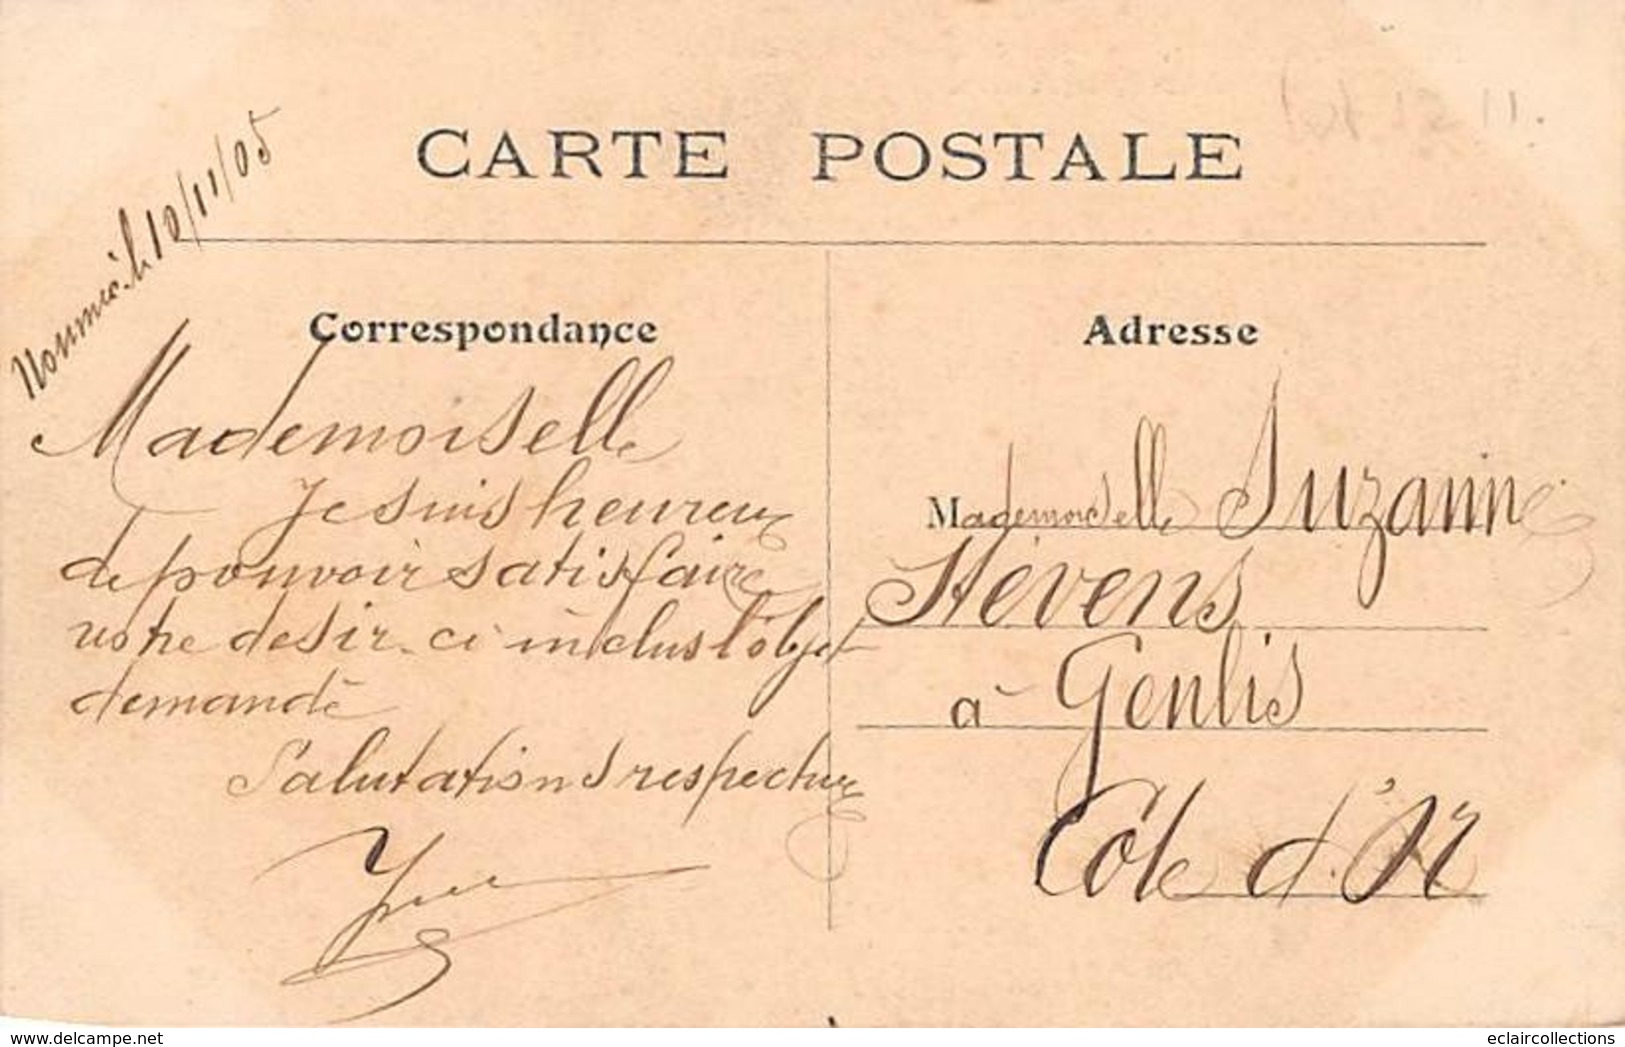 CARTE POSTALE
Nouméa le 10/11/05
Correspondance
Mademoiselle
Je suis heureux
de pouvoir satisfaire
votre desir. ci inclus l'objet
demandé
Salutations respectueu
Adresse
Mademoiselle Suzanne
Stévens
à Genlis
Côte d'Or
delcampe.net
eclaircollections